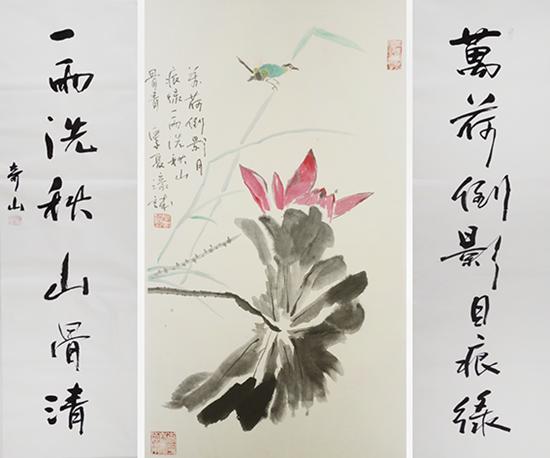 萬荷倒影目痕綠
萬荷倒影月
痕緑一雨洗秋山
骨青
一雨洗秋山骨清
奇山